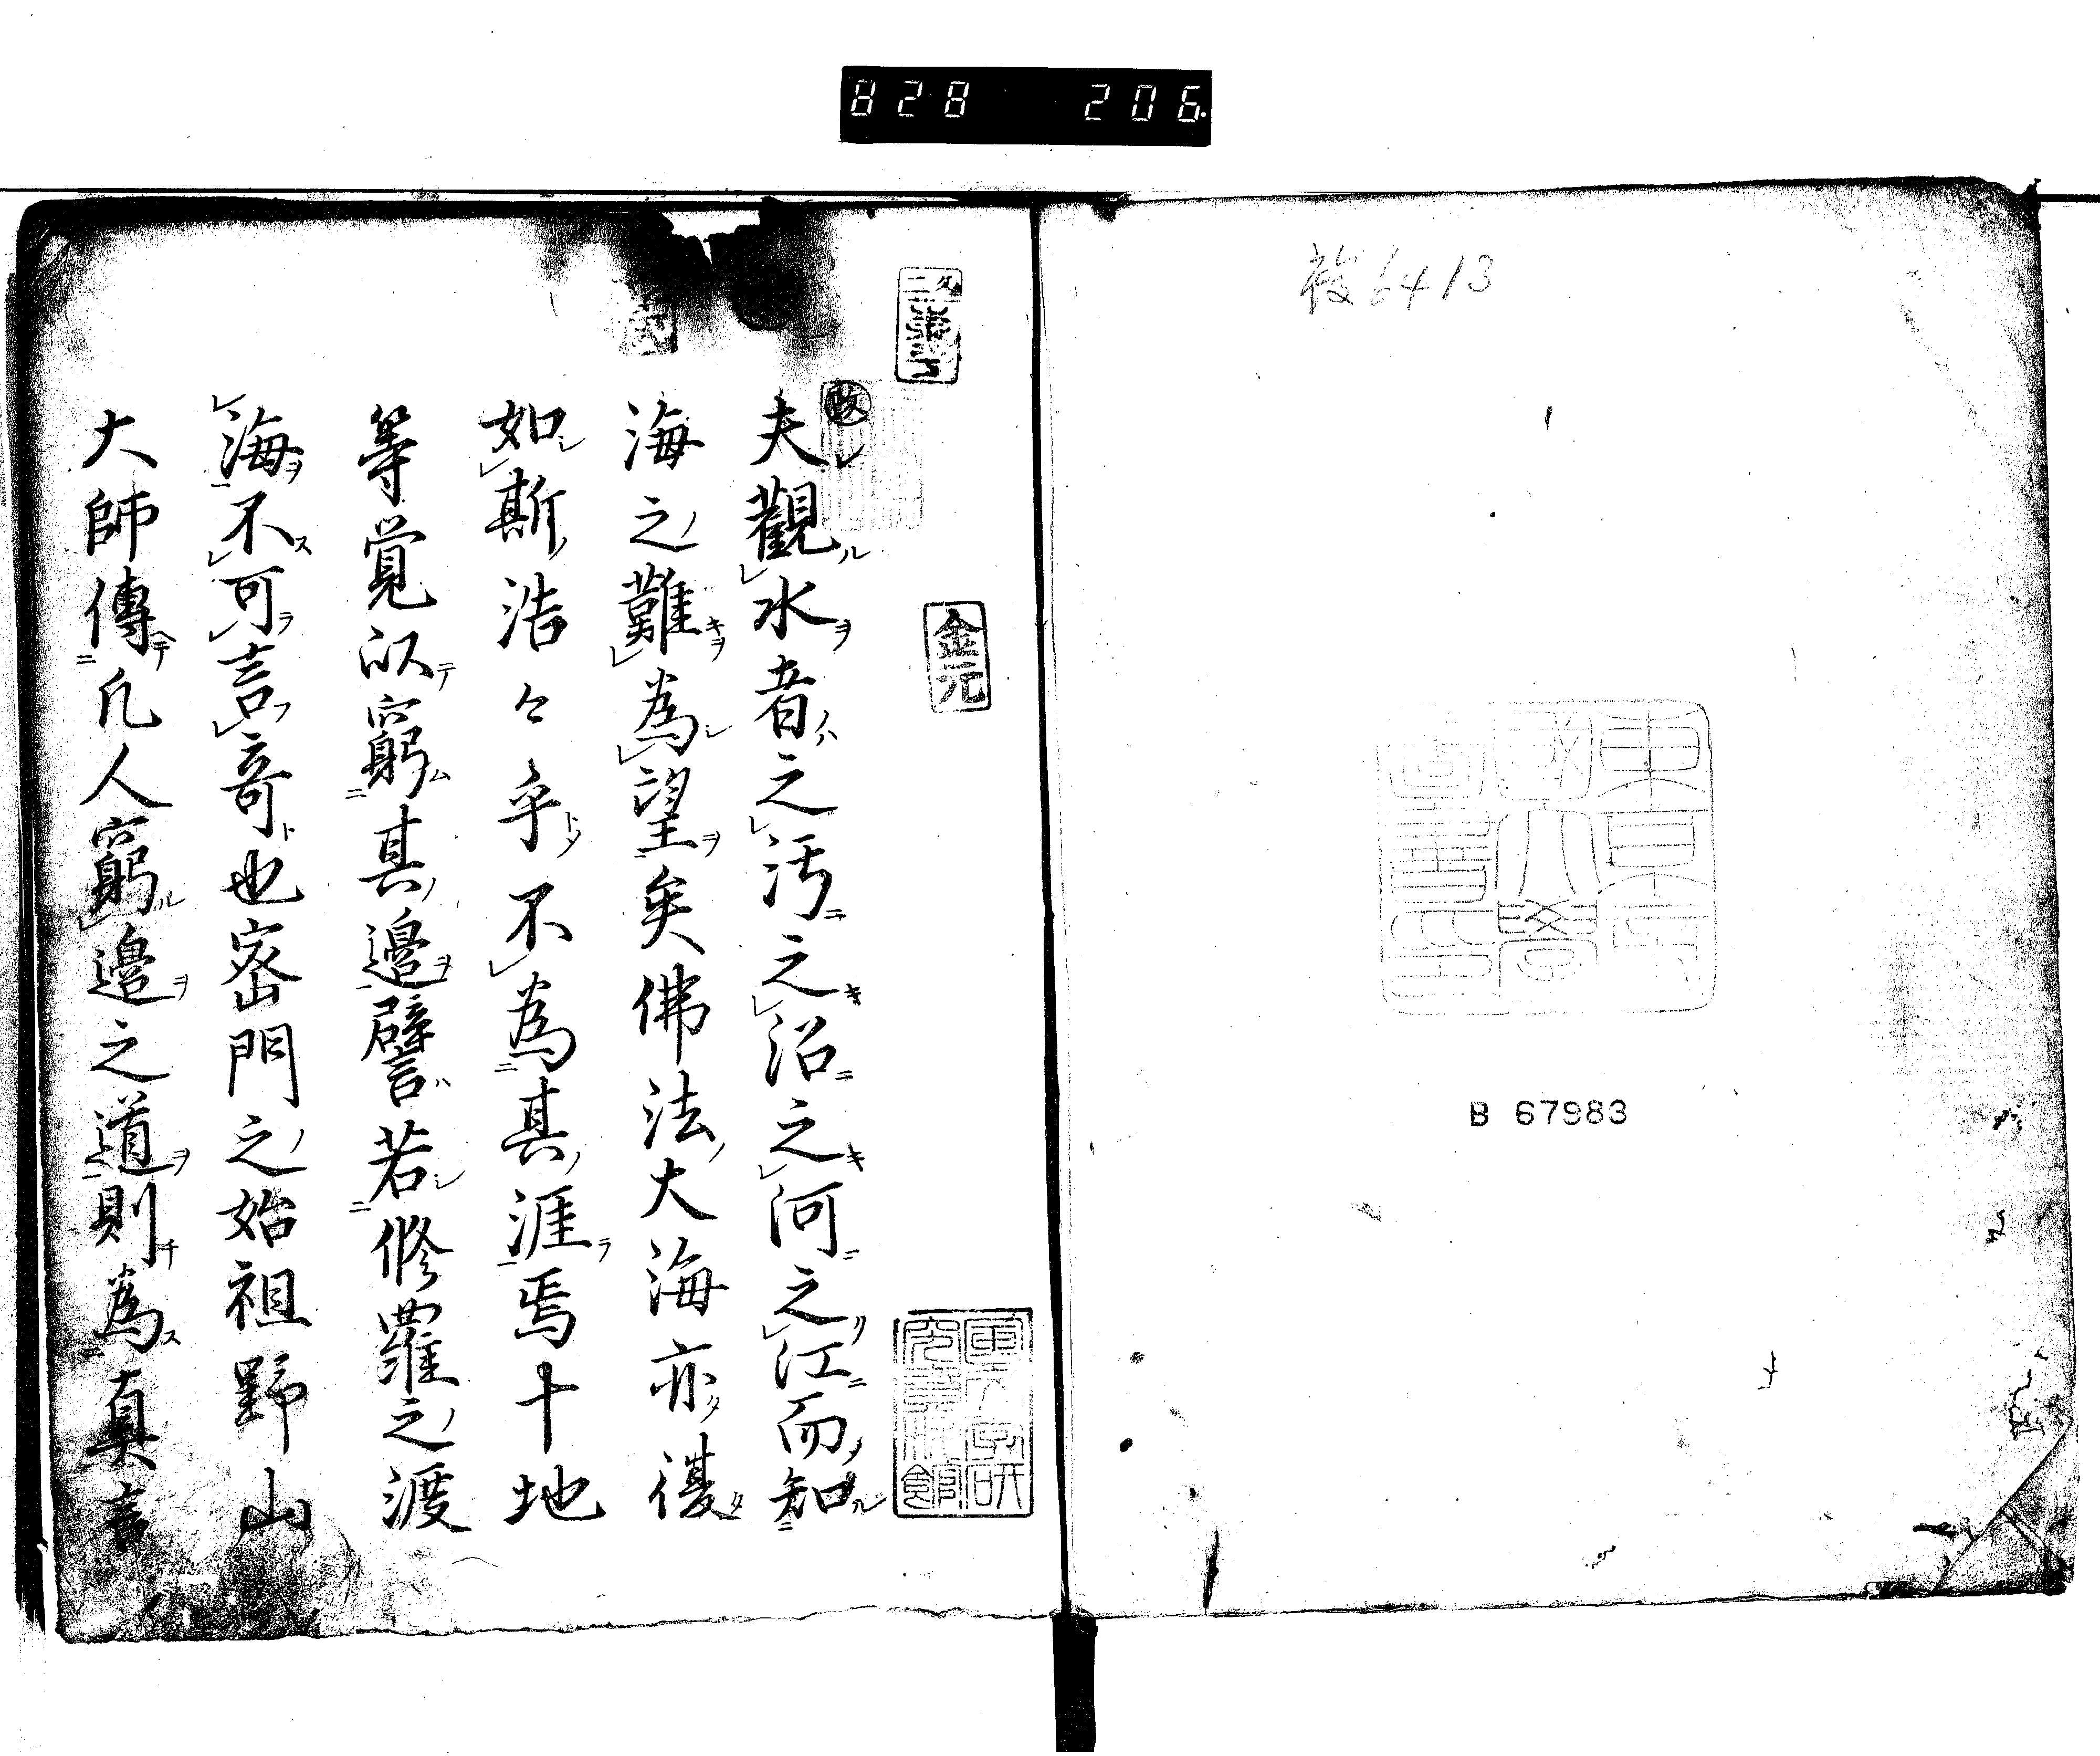 828 206
複6413
東京帝
國大學
圖書印
B 67983
金元
夫觀水者之汚之沼之河之江而知
海之難為望矣佛法大海亦復
如斯浩々乎不為其涯焉十地
等覚以窮其邊譬若修羅之渡
海不可言奇也密門之始祖野山
大師傳凡人窮邊之道則為真言